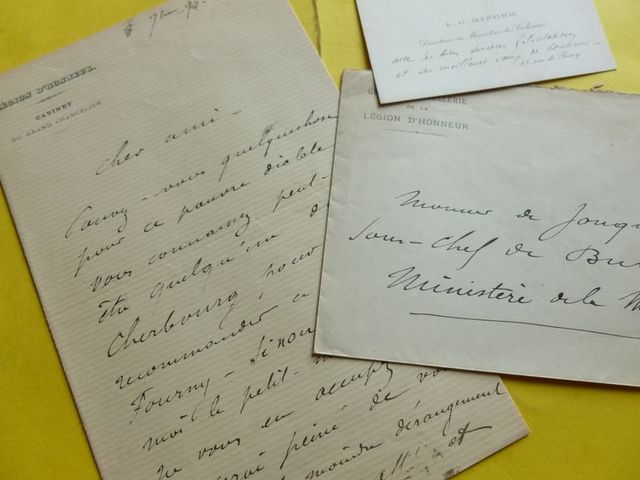 LÉGION D'HONNEUR
CABINET
DU GRAND CHANCELIER
Cher ami -
Pouvez-vous quelquechose
pour ce pauvre diable
vous connaissez peut-
être quelqu'un
Cherbourg, pour
recommander a
Fourny - Sinon
moi le petit-
ne vous en occupez
serai peiné de
moindre dérangement
et
L. G. BINGER
Directeur au Ministère des Colonies
avec les bien sincères félicitations
et les meilleurs vœux de bonheur
LERIE
DE LA
LÉGION D'HONNEUR
Monsieur de Jonqu
Sous-Chef de Bu
Ministère de la M